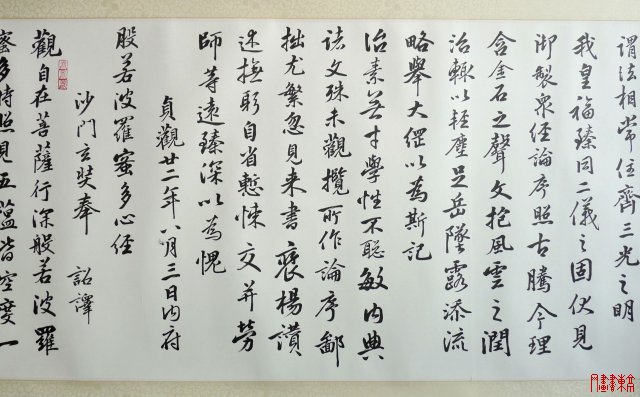 谓法相常住齊三光之明
我皇福臻同二儀之固伏見
御製眾经論序照古騰今理
含金石之聲文抱風雲之潤
治輒以輕塵足岳墜露添流
略舉大綱以為斯記
治素無才學性不聡敏内典
諸文殊未觀攬所作論序鄙
拙尤繁忽見来書褒楊讃
述撫躬自省慙悚交并勞
師等遠臻深以為愧
貞觀廿二年八月三日内府
般若波羅蜜多心经
沙门玄奘奉 詔譯
觀自在菩薩行深般若波羅
蜜多時照見五藴皆空度一